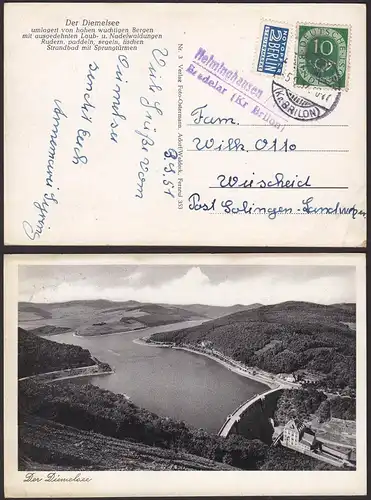 Der Diemelsee
umlagert von hohen wuchtigen Bergen
mit ausgedehnten Laub- u. Nadelwaldungen
Rudern, paddeln, segeln, fischen
Strandbad mit Sprungtürmen
Viele Grüße vom
Diemelsee
sendet Euch
8.5.51
Nr. 3 Verlag Foto-Ostermann, Adorf/Waldeck, Fernruf 333
Helminghausen
Bredelar (Kr Brilon)
NOTOPFER
2 BERLIN
STEUERMARKE
DEUTSCHE POST
10
(Kr. BRILON)
Fam.
Wilh. Otto
Wuscheid
Post Solingen-Landwehr
Der Diemelsee